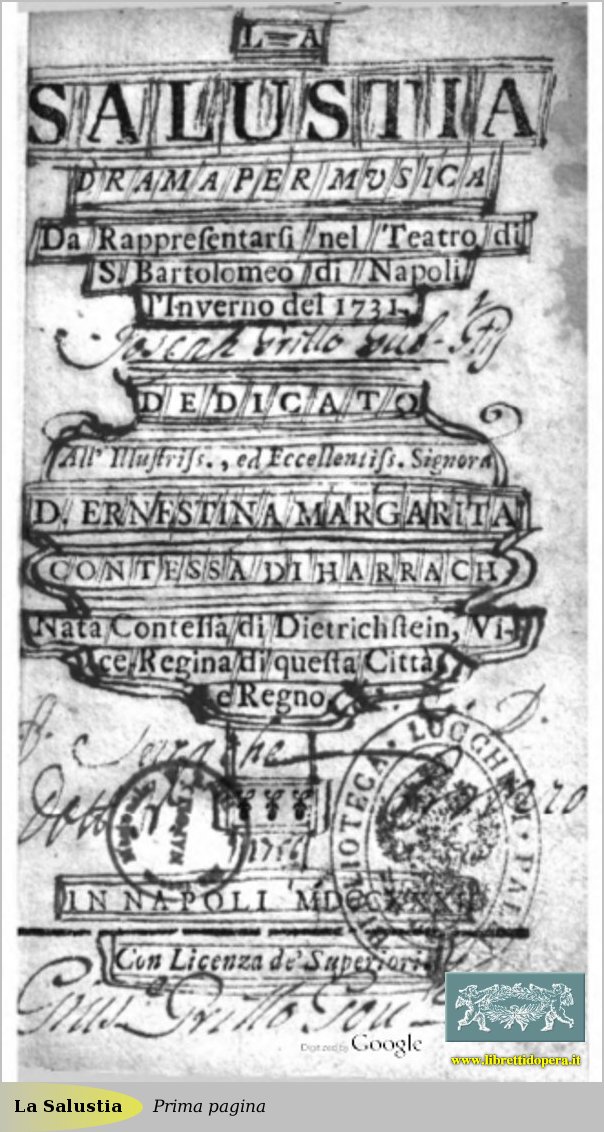 LA
SALUSTIA
DRAMA PER MUSICA
Da Rappreſentarſi nel Teatro di
S. Bartolomeo di Napoli
l'Inverno del 1731.
Joseph Grillo
DEDICATO
All' Illuſtriſs., ed Eccellentiſs. Signora
D. ERNESTINA MARGARITA
CONTESSA DI HARRACH
Nata Conteſſa di Dietrichſtein, Vi-
ce-Regina di queſta Città,
e Regno.
NAPOLI
BIBLIOTECA LUCCHESI PAL
1756
IN NAPOLI
Con Licenza de' Superiori.
Grillo
Digitized by Google
www.librettidopera.it
La Salustia Prima pagina